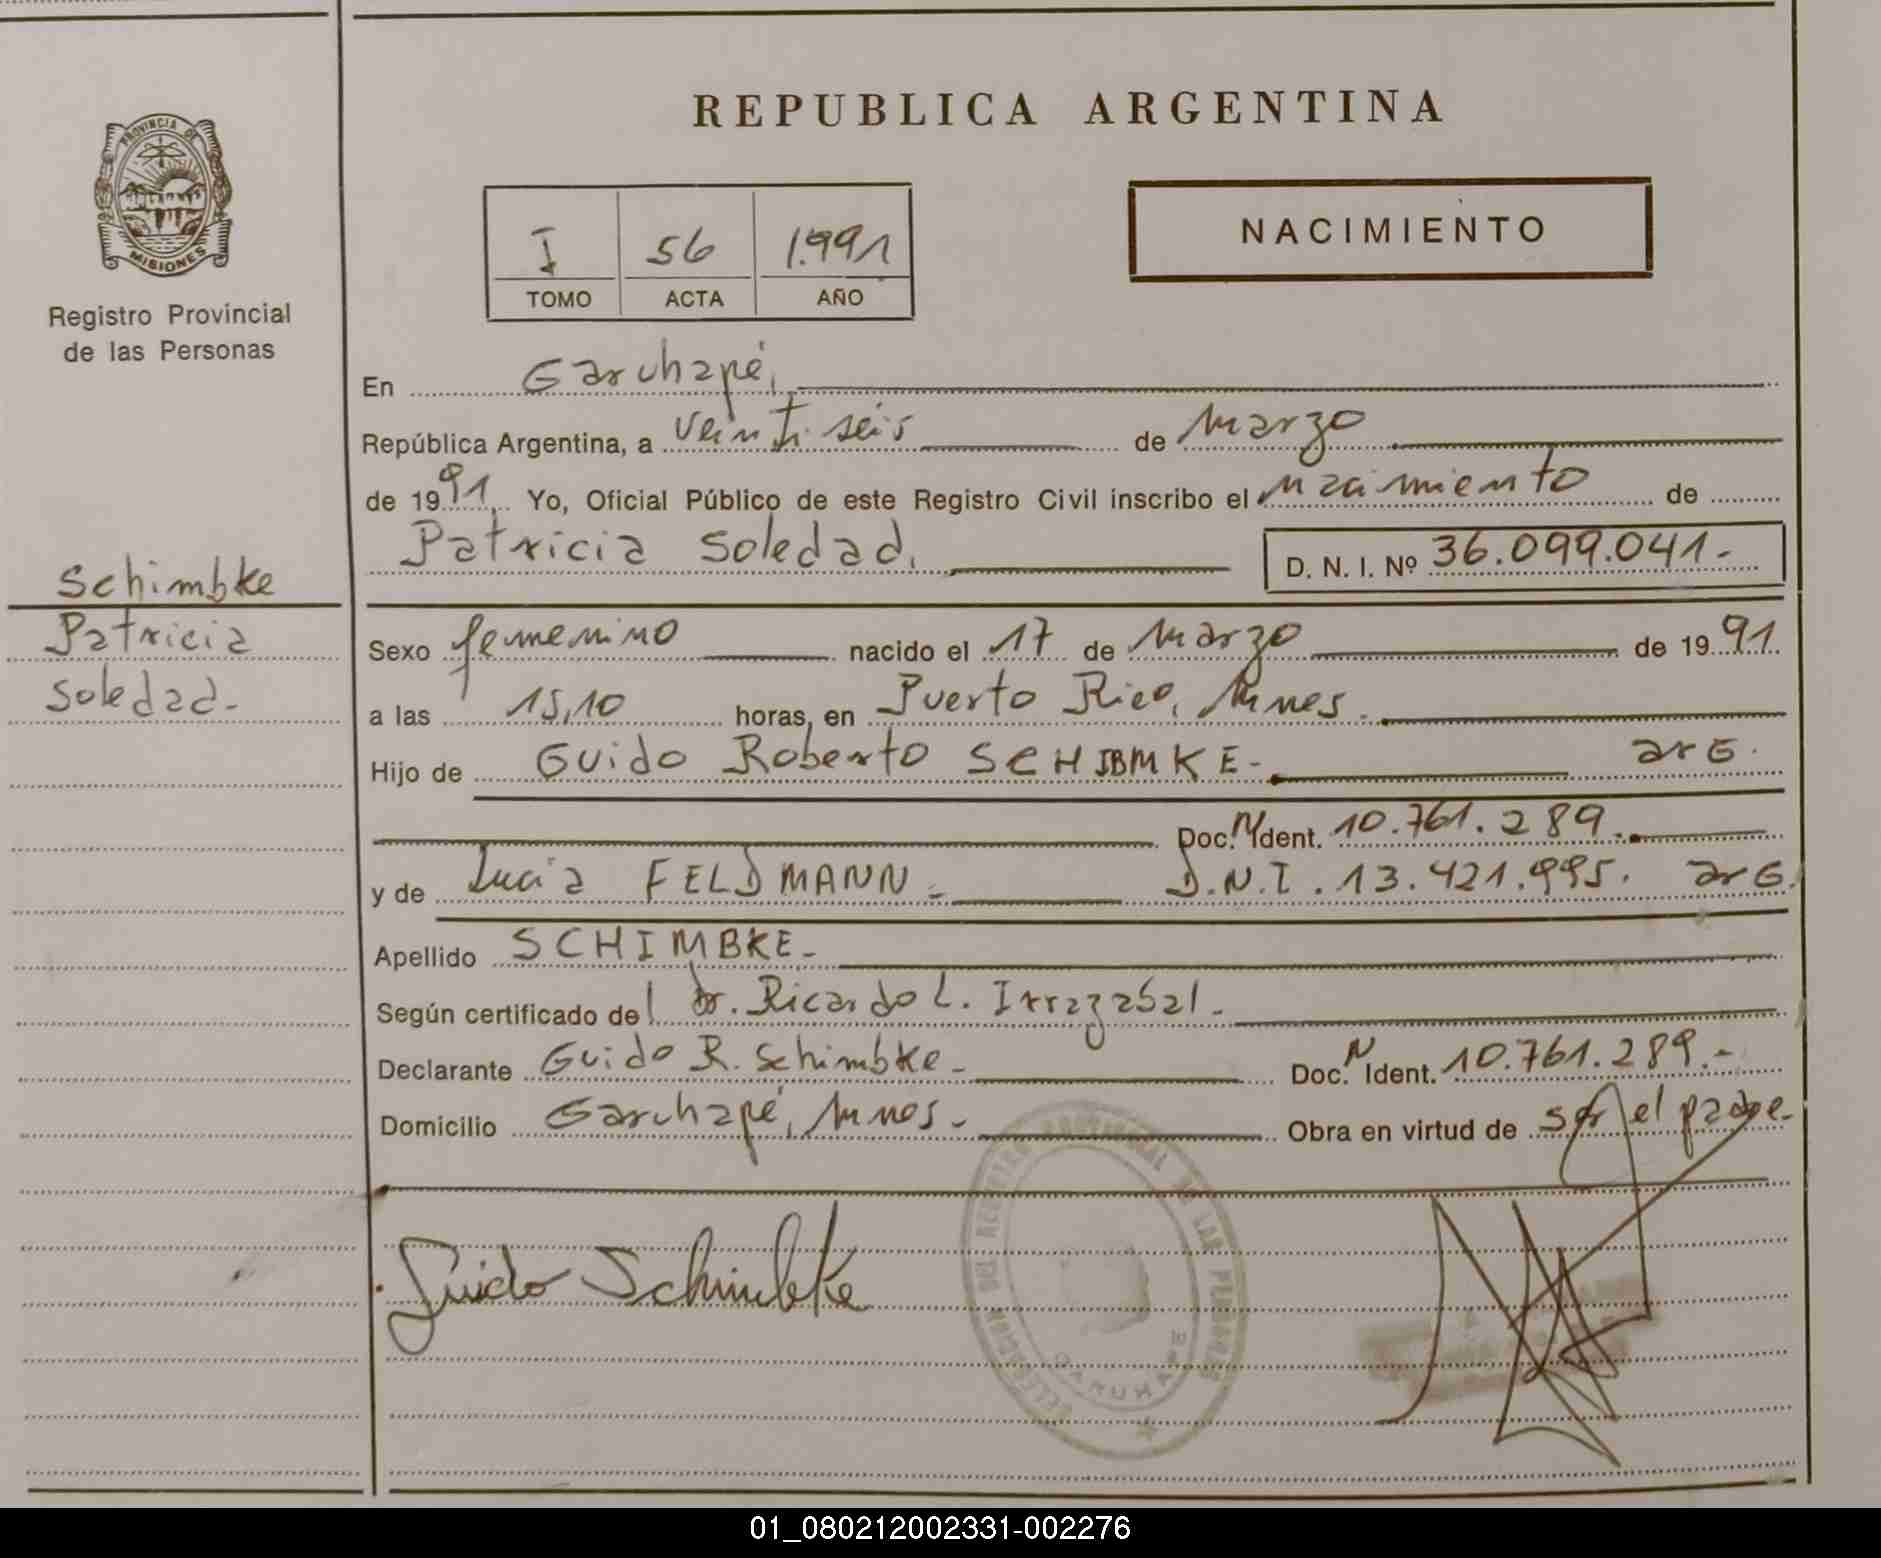 REPUBLICA ARGENTINA
PROVINCIA DE
MISIONES
Registro Provincial
de las Personas
I 56 1.991
TOMO ACTA AÑO
NACIMIENTO
En Garuhapé,
República Argentina, a veintiseis de Marzo
de 1991. Yo, Oficial Público de este Registro Civil inscribo el nacimiento de
Patricia Soledad.
D. N. I. Nº 36.099.041.-
Schimbke
Patricia
Soledad.-
Sexo femenino nacido el 17 de Marzo de 1991.
a las 15,10 horas, en Puerto Rico, Mnes.
Hijo de Guido Roberto SCHIBMKE.- arG.
Doc. N Ident. 10.761.289.
y de Lucia FELDMANN.- D.N.I. 13.421.995. arG.
Apellido SCHIMBKE.-
Según certificado del dr. Ricardo L. Irrazabal.-
Declarante Guido R. Schimbke.- Doc. N Ident. 10.761.289.-
Domicilio Garuhapé, Mnes.- Obra en virtud de ser el padre.-
Guido Schimbke
GARUHAPE
01_080212002331-002276